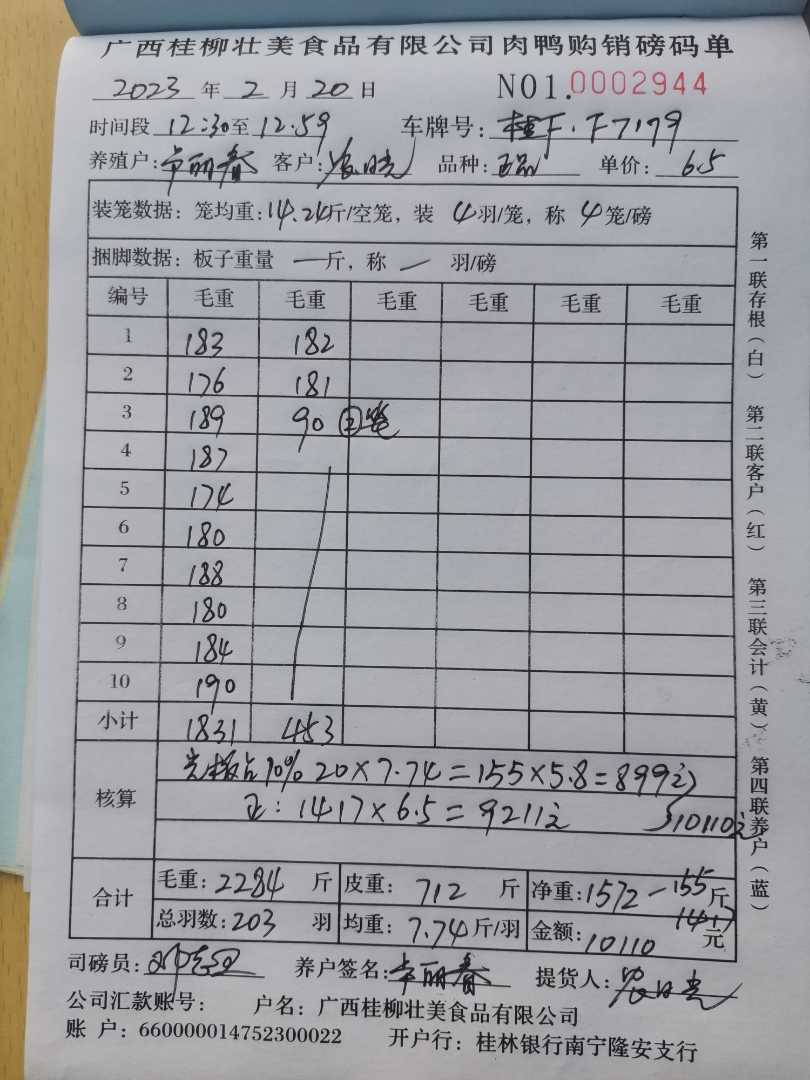 广西桂柳壮美食品有限公司肉鸭购销磅码单
2023 年 2 月 20 日 NO1.0002944
时间段 12:30至 12:59 车牌号: 桂F·F7179
养殖户: 卓丽春 客户: 单价: 6.5 品种:
装笼数据: 笼均重:14.24斤/空笼, 装 4羽/笼, 称 4笼/磅
捆脚数据: 板子重量 一斤, 称 一 羽/磅
编号 毛重 毛重 毛重 毛重 毛重 毛重
1 183 182
2 176 181
3 189 90 笼
4 187
5 174
6 180
7 188
8 180
9 184
10 190
小计 1831 453
核算 占10% 20×7.74=155×5.8=899元
正: 1417×6.5=9211元 10110元
合计 毛重:2284 斤 皮重: 712 斤 净重:1572-155斤
1417
总羽数:203 羽 均重: 7.74斤/羽 金额:10110 元
司磅员: 养户签名:卓丽春 提货人:
公司汇款账号: 户名: 广西桂柳壮美食品有限公司
账 户: 660000014752300022 开户行: 桂林银行南宁隆安支行
第一联存根(白) 第二联客户(红) 第三联会计(黄) 第四联养户(蓝)